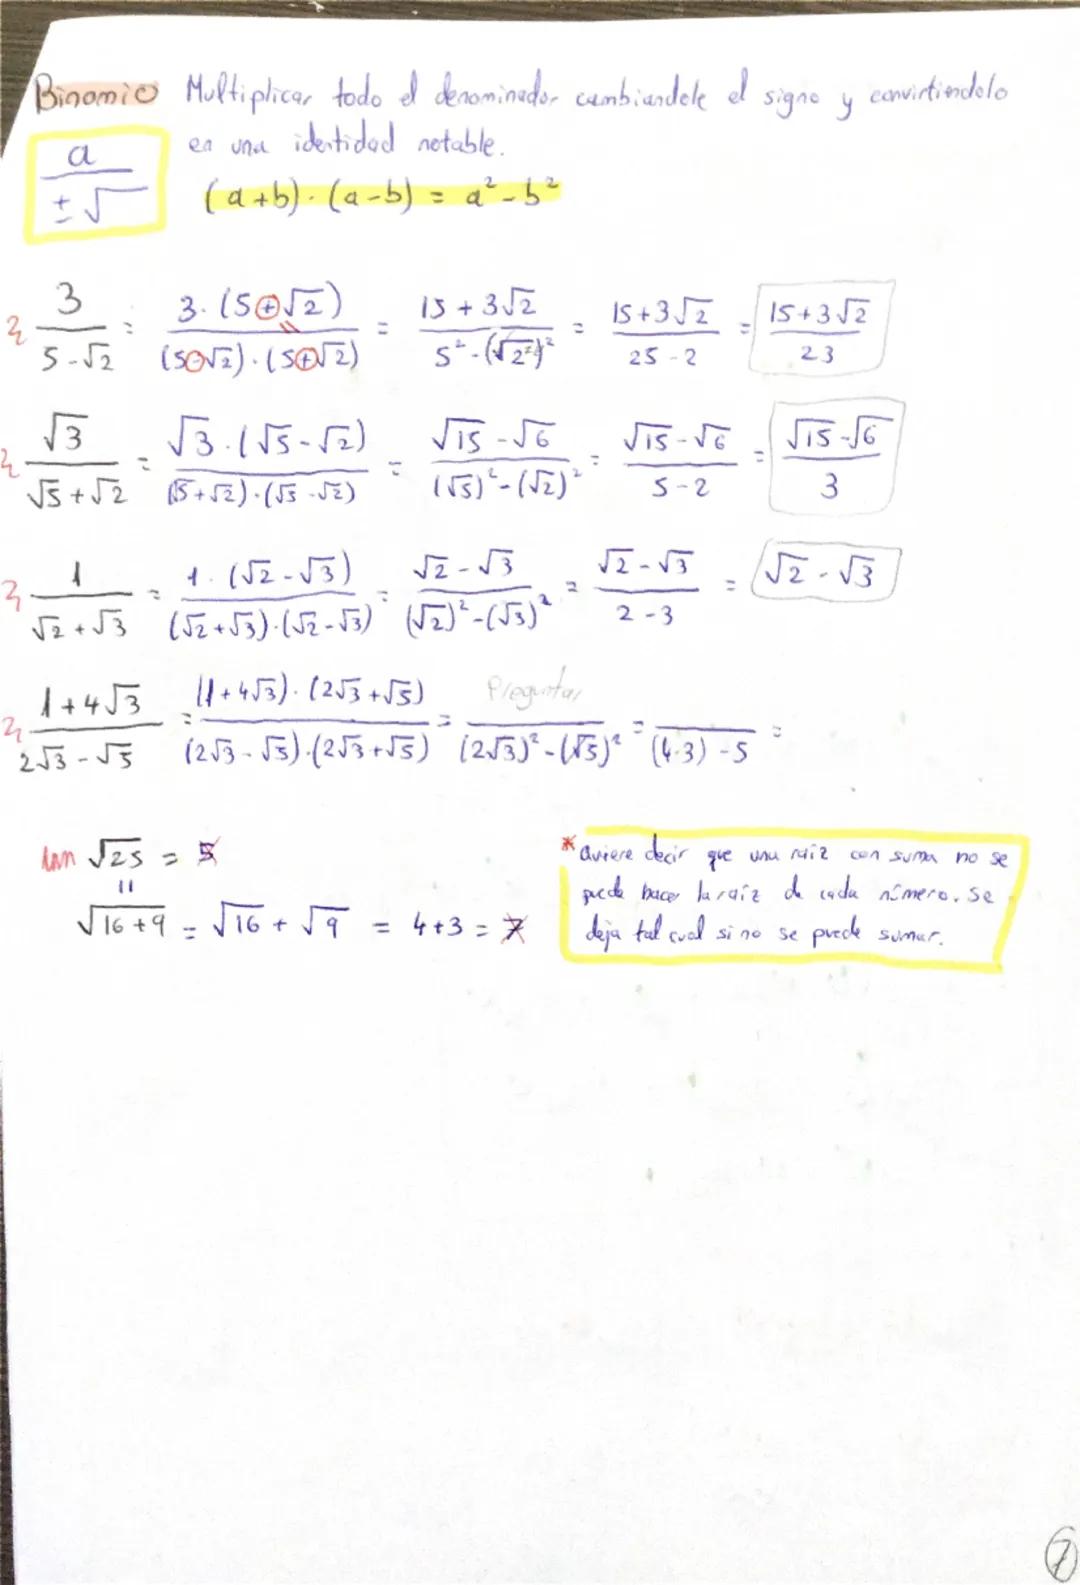 Binomio Multiplicar todo el denominador cambiandole el signo y convirtiendolo
en una identidad notable.
a/±√
(a+b)·(a-b) = a²-b²
3/(5-√2) = 3·(5+√2)/(5-√2)·(5+√2) = (15+3√2)/(5²-(√2)²) = (15+3√2)/(25-2) = (15+3√2)/23
√3/(√5+√2) = √3·(√5-√2)/(√5+√2)·(√5-√2) = (√15-√6)/((√5)²-(√2)²) = (√15-√6)/(5-2) = (√15-√6)/3
1/(√2+√3) = 1·(√2-√3)/(√2+√3)·(√2-√3) = (√2-√3)/((√2)²-(√3)²) = (√2-√3)/(2-3) = √2-√3
(1+4√3)/(2√3-√5) = (1+4√3)·(2√3+√5)/(2√3-√5)·(2√3+√5) = Preguntar/((2√3)²-(√5)²) = /(4·3)-5 =
√25 = 5
॥
√16+9 = √16 + √9 = 4+3 = 7
* Quiere decir que una raíz con suma no se
puede hacer la raíz de cada número. Se
deja tal cual si no se puede sumar.
7